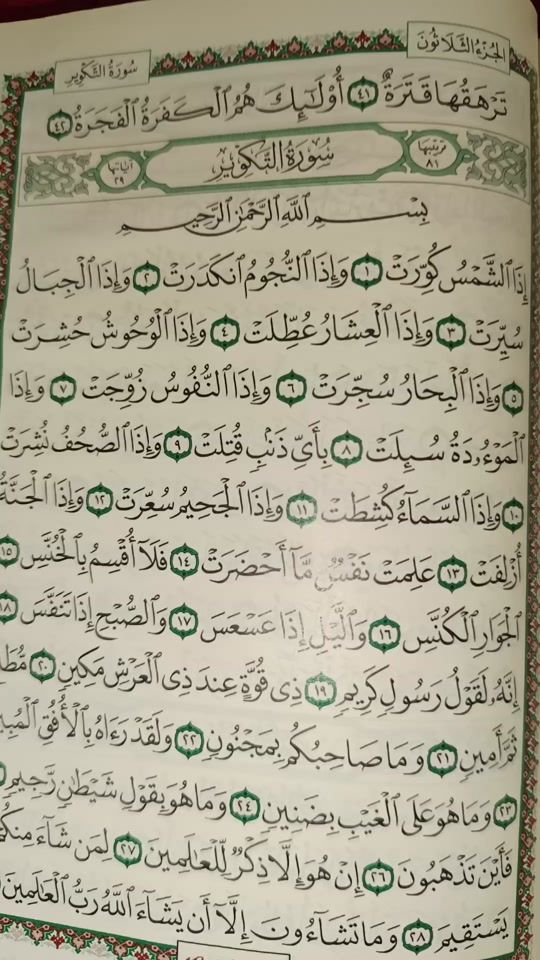 الجزء الثلاثون
سورة التكوير
تَرْهَقُهَا قَتَرَةٌ ٤١ أُوْلَـٰٓئِكَ هُمُ ٱلْكَفَرَةُ ٱلْفَجَرَةُ ٤٢
ترتيبها ٨١ سورة التكوير آياتها ٢٩
بِسْمِ ٱللَّهِ ٱلرَّحْمَـٰنِ ٱلرَّحِيمِ
إِذَا ٱلشَّمْسُ كُوِّرَتْ ١ وَإِذَا ٱلنُّجُومُ ٱنكَدَرَتْ ٢ وَإِذَا ٱلْجِبَالُ
سُيِّرَتْ ٣ وَإِذَا ٱلْعِشَارُ عُطِّلَتْ ٤ وَإِذَا ٱلْوُحُوشُ حُشِرَتْ
٥ وَإِذَا ٱلْبِحَارُ سُجِّرَتْ ٦ وَإِذَا ٱلنُّفُوسُ زُوِّجَتْ ٧ وَإِذَا
ٱلْمَوْءُۥدَةُ سُئِلَتْ ٨ بِأَىِّ ذَنۢبٍ قُتِلَتْ ٩ وَإِذَا ٱلصُّحُفُ نُشِرَتْ
١٠ وَإِذَا ٱلسَّمَآءُ كُشِطَتْ ١١ وَإِذَا ٱلْجَحِيمُ سُعِّرَتْ ١٢ وَإِذَا ٱلْجَنَّةُ
أُزْلِفَتْ ١٣ عَلِمَتْ نَفْسٌ مَّآ أَحْضَرَتْ ١٤ فَلَآ أُقْسِمُ بِٱلْخُنَّسِ ١٥
ٱلْجَوَارِ ٱلْكُنَّسِ ١٦ وَٱلَّيْلِ إِذَا عَسْعَسَ ١٧ وَٱلصُّبْحِ إِذَا تَنَفَّسَ ١٨
إِنَّهُۥ لَقَوْلُ رَسُولٍ كَرِيمٍ ١٩ ذِى قُوَّةٍ عِندَ ذِى ٱلْعَرْشِ مَكِينٍ ٢٠
ثَمَّ أَمِينٍ ٢١ وَمَا صَاحِبُكُم بِمَجْنُونٍ ٢٢ وَلَقَدْ رَءَاهُ بِٱلْأُفُقِ
٢٣ وَمَا هُوَ عَلَى ٱلْغَيْبِ بِضَنِينٍ ٢٤ وَمَا هُوَ بِقَوْلِ شَيْطَـٰنٍ رَّجِيمٍ
فَأَيْنَ تَذْهَبُونَ ٢٦ إِنْ هُوَ إِلَّا ذِكْرٌ لِّلْعَـٰلَمِينَ ٢٧ لِمَن شَآءَ
يَسْتَقِيمَ ٢٨ وَمَا تَشَآءُونَ إِلَّآ أَن يَشَآءَ ٱللَّهُ رَبُّ ٱلْعَـٰلَمِينَ